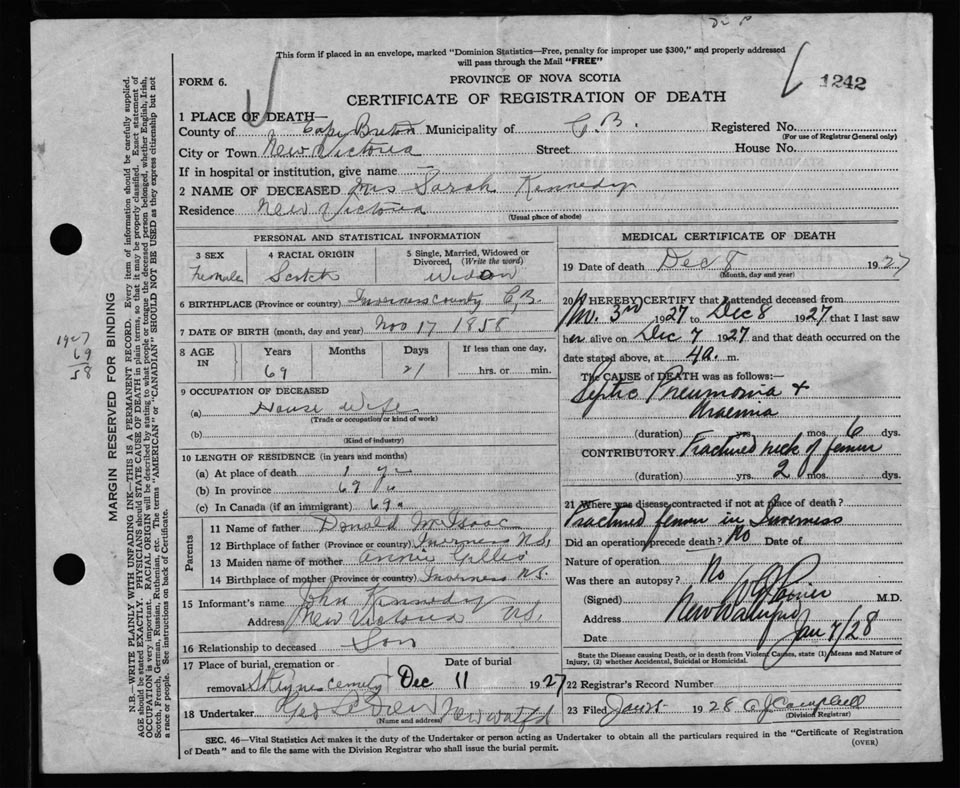 This form if placed in an envelope, marked "Dominion Statistics—Free, penalty for improper use $300," and properly addressed
will pass through the Mail "FREE"
FORM 6.
PROVINCE OF NOVA SCOTIA
1242
CERTIFICATE OF REGISTRATION OF DEATH
1 PLACE OF DEATH—
County of Cape Breton Municipality of C.B. Registered No.
(For use of Registrar General only)
City or Town New Victoria Street House No.
If in hospital or institution, give name
2 NAME OF DECEASED Mrs Sarah Kennedy
Residence New Victoria
(Usual place of abode)
PERSONAL AND STATISTICAL INFORMATION
3 SEX 4 RACIAL ORIGIN 5 Single, Married, Widowed or Divorced, (Write the word)
Female Scotch Widow
6 BIRTHPLACE (Province or country) Inverness County C.B.
7 DATE OF BIRTH (month, day and year) Nov 17 1858
8 AGE IN Years Months Days If less than one day,
69 21 hrs. or min.
9 OCCUPATION OF DECEASED
(a) House Wife
(Trade or occupation or kind of work)
(b)
(Kind of industry)
10 LENGTH OF RESIDENCE (in years and months)
(a) At place of death 1 yr
(b) In province 69 "
(c) In Canada (if an immigrant) 69 "
Parents
11 Name of father Donald McIsaac
12 Birthplace of father (Province or country) Inverness N.S.
13 Maiden name of mother Annie Gillis
14 Birthplace of mother (Province or country) Inverness N.S.
15 Informant's name John Kennedy
Address New Victoria N.S.
16 Relationship to deceased Son
17 Place of burial, cremation or Date of burial
removal cemety Dec 11 1927
18 Undertaker New Watfd
(Name and address)
MEDICAL CERTIFICATE OF DEATH
19 Date of death Dec 8 1927
(Month, day and year)
20 I HEREBY CERTIFY that I attended deceased from
Nov. 3rd 1927 to Dec 8 1927, that I last saw
her alive on Dec 7 1927, and that death occurred on the
date stated above, at 4a. m.
The CAUSE of DEATH was as follows:
Septic Pneumonia +
Uraemia
(duration) yrs. mos. 6 dys.
CONTRIBUTORY Fractured neck of femur
(duration) yrs. 2 mos. dys.
21 Where was disease contracted if not at place of death?
Fractured femur in Inverness
Did an operation precede death? No Date of
Nature of operation
Was there an autopay? No
(Signed) M.D.
Address New Waterford
Date Jan 7/28
State the Disease causing Death, or in death from Violent Causes, state (1) Means and Nature of
Injury, (2) whether Accidental, Suicidal or Homicidal.
22 Registrar's Record Number
23 Filed 1928 Campbell
(Division Registrar)
SEC. 46—Vital Statistics Act makes it the duty of the Undertaker or person acting as Undertaker to obtain all the particulars required in the "Certificate of Registration
of Death" and to file the same with the Division Registrar who shall issue the burial permit. (OVER)
MARGIN RESERVED FOR BINDING
1927
69
58
N.B.—WRITE PLAINLY, WITH UNFADING INK—THIS IS A PERMANENT RECORD. Every item of information should be carefully supplied.
AGE should be stated EXACTLY. PHYSICIANS should STATE CAUSE OF DEATH in plain terms, so that it may be properly classified. Exact statement of
OCCUPATION is very important. RACIAL ORIGIN will be described by stating to what people or tongue the deceased person belonged, whether English, Irish,
Scotch, French, German, Russian, Ruthenian, etc. The terms "AMERICAN" or "CANADIAN" SHOULD NOT BE USED as they express citizenship but not
a race or people. See instructions on back of Certificate.